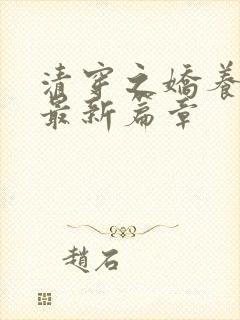 清穿之嬌養
最新篇章
趙石